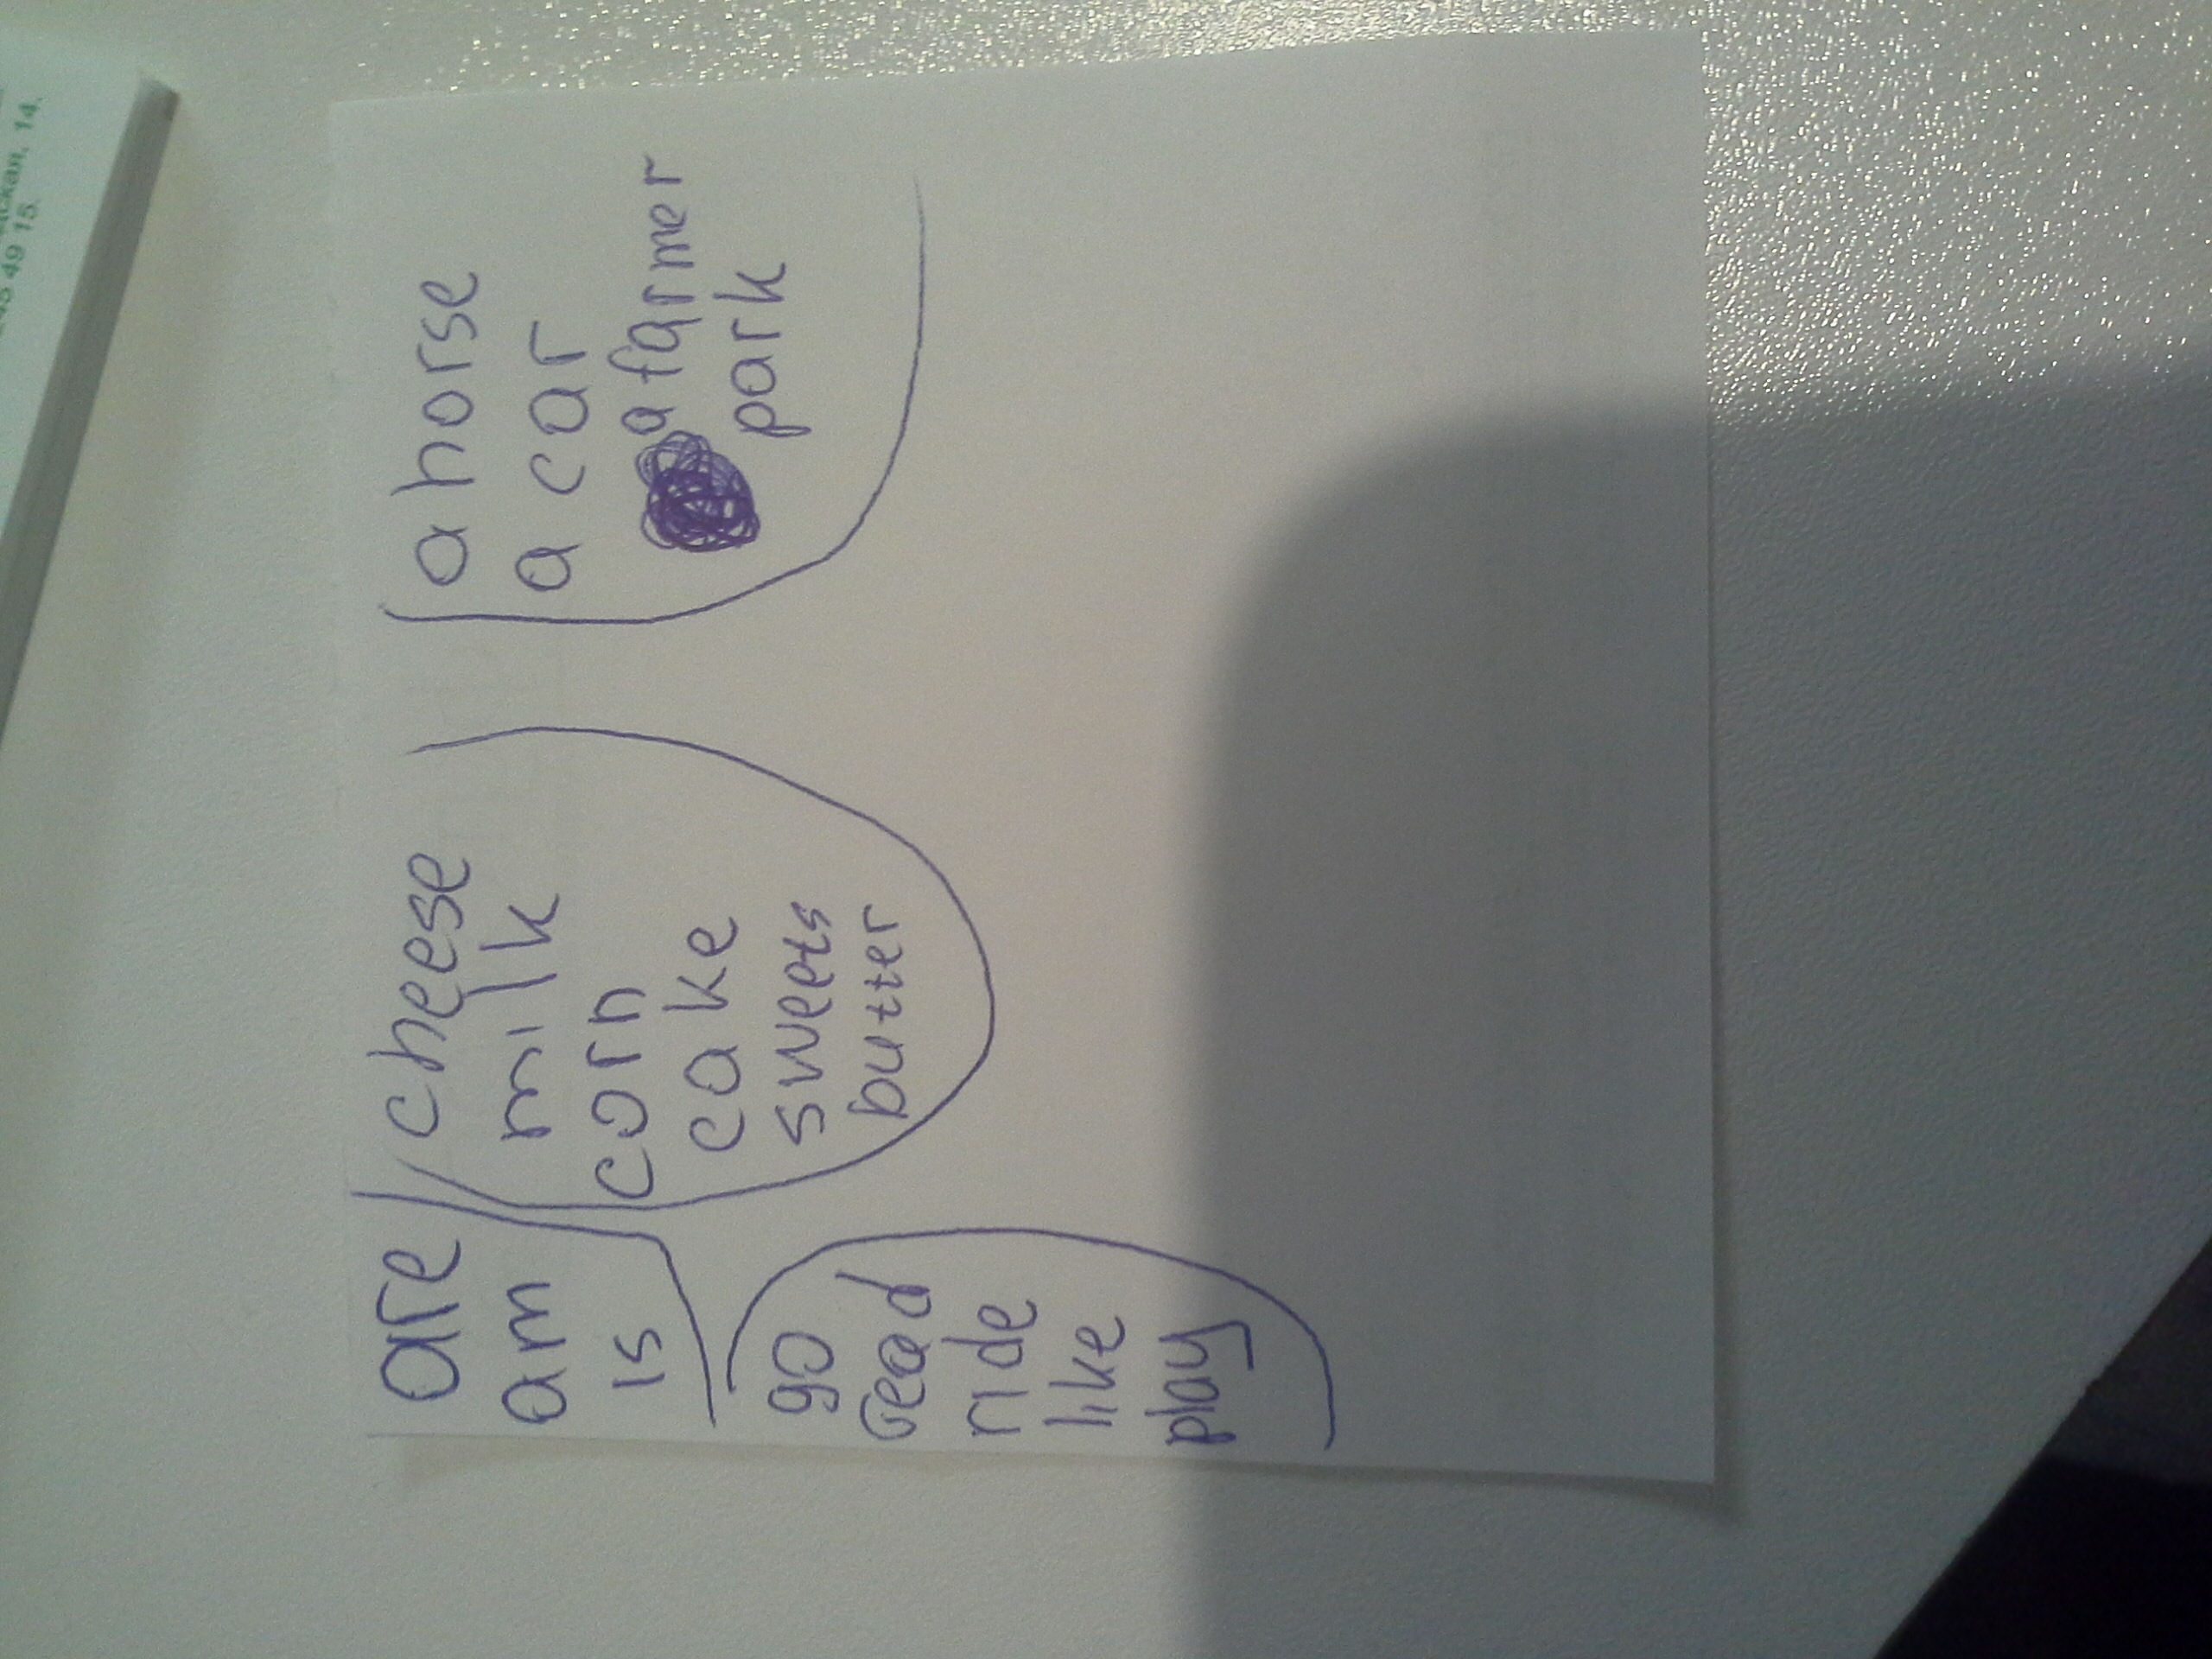 are
am
is
go
read
ride
like
play
cheese
milk
corn
cake
sweets
butter
a horse
a car
a farmer
park
14.
49 15.